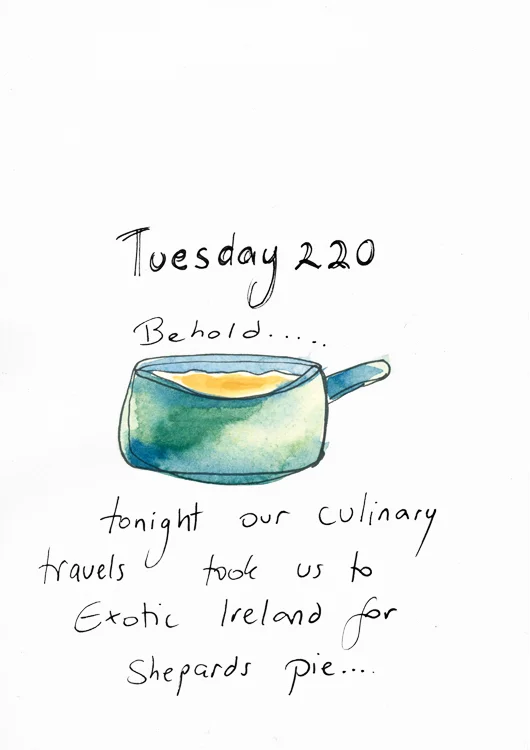 Tuesday 220
Behold.....
tonight our culinary
travels took us to
Exotic Ireland for
Shepards pie....